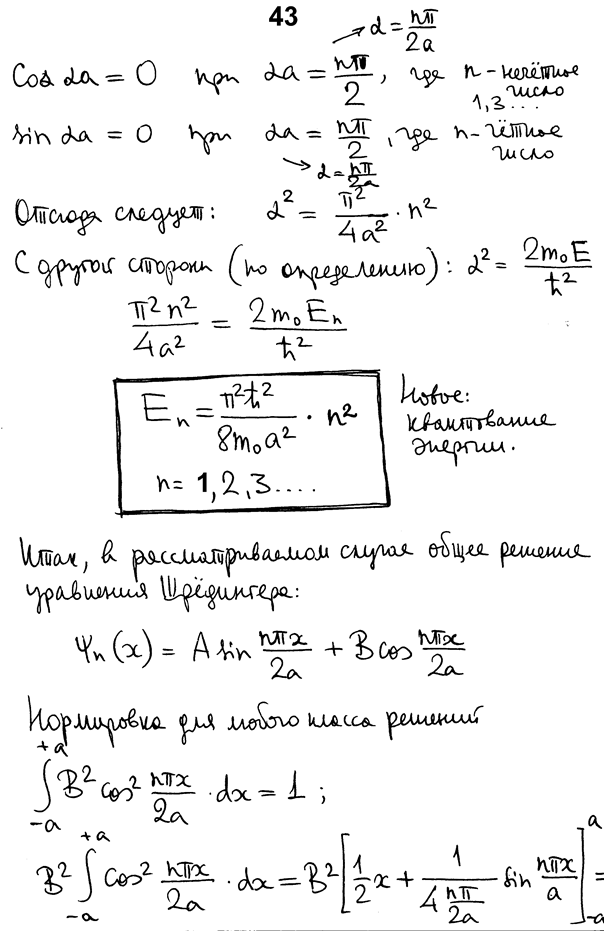 43
→ α = nπ/2a
Cos αa = 0 при αa = nπ/2, где n - нечётное число 1,3...
sin αa = 0 при αa = nπ/2, где n - чётное число
→ α = nπ/2a
Отсюда следует: α² = π²/4a² · n²
С другой стороны (по определению): α² = 2m₀E/ħ²
π²n²/4a² = 2m₀Eₙ/ħ²
Eₙ = π²ħ²/8m₀a² · n²
n = 1,2,3....
Новое:
квантование
энергии.
Итак, в рассматриваемом случае общее решение
уравнения Шрёдингера:
Ψₙ(x) = A sin nπx/2a + B cos nπx/2a
Нормировка для любого класса решений
∫₋ₐ⁺ᵃ B² cos² nπx/2a · dx = 1 ;
B² ∫₋ₐ⁺ᵃ cos² nπx/2a · dx = B² [1/2 x + 1/(4 nπ/2a) sin nπx/a]₋ₐᵃ =